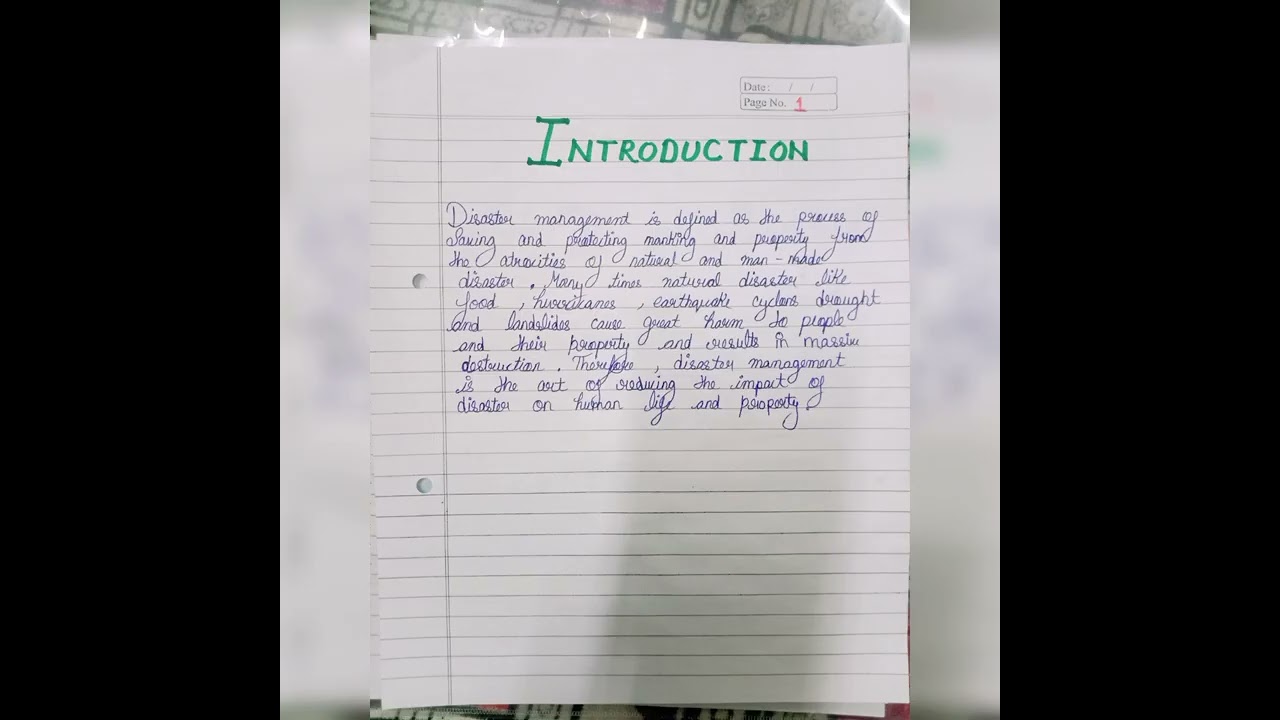 Date: / /
Page No. 1
INTRODUCTION
Disaster management is defined as the process of
Saving and protecting manking and property from
the atrocities of natural and man-made
disaster. Many times natural disaster like
food, hurricanes, earthquake cyclons drought
and landslides cause great harm to people
and their property and results in massive
destruction. Therefore, disaster management
is the art of reducing the impact of
disaster on human life and property.